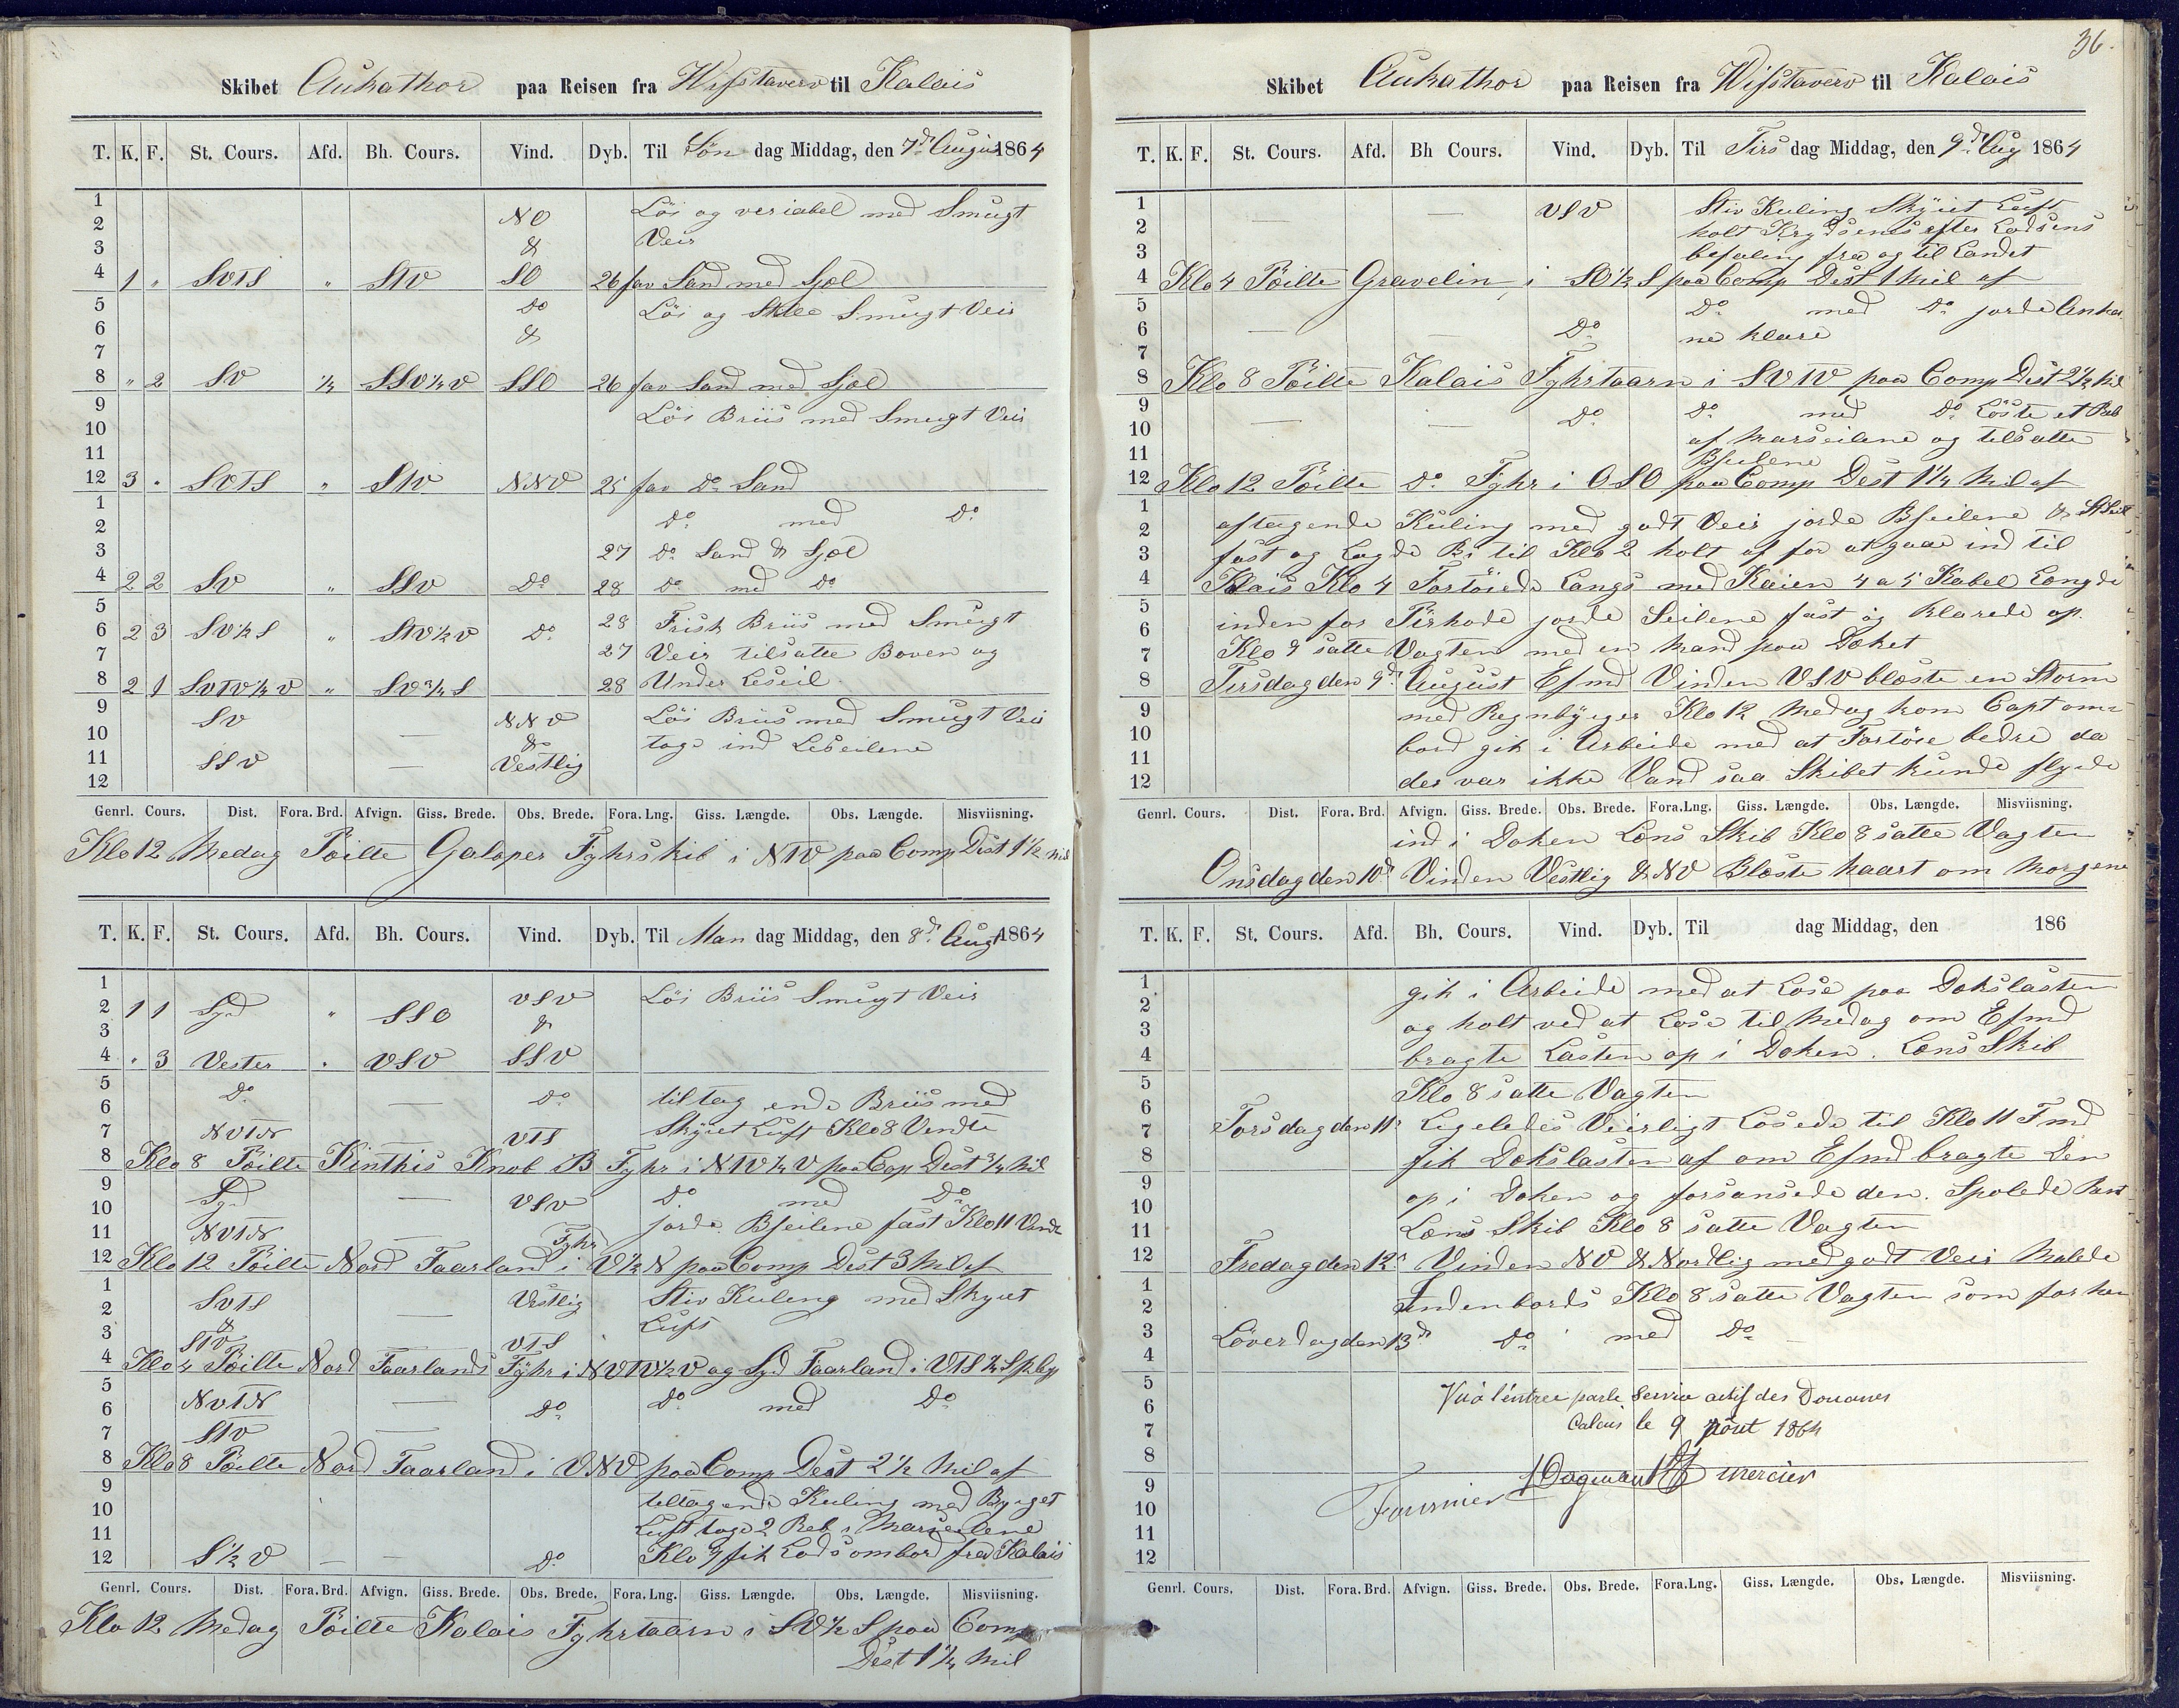 Skibet Aukathor paa Reisen fra Wifstavarv til Kalais
T. K. F. St. Cours. Afd. Bh. Cours. Vind. Dyb. Til Søn dag Middag, den 7d August 1864
1 Löi og veriabel med Smugt
2 NO Veir
3 &
4 1 " SVTS " STV SO 26 fav Sand med Sjæl
5 Do Löi og Stille Smugt Veir
6 &
7
8 " 2 SV 1/4 SSV 1/4 V SSO 26 fav Sand med Sjæl
9 Löi Briis med Smugt Veir
10
11
12 3 " SVTS " STV NNV 25 fav Do Sand
1 Do med Do
2
3 27 Do Sand & Sjæl
4 2 2 SV " SSV Do 28 Do med Do
5 28 Frisk Briis med Smugt
6 2 3 SV 1/2 S " STV 1/2 V Do
7 27 Veir tilsatte Boven og
8 2 1 SVTV 1/4 V " SV 3/4 S 28 Under Leseil
9 SV NNV Löi Briis med Smugt Veir
10 — & toge ind Leseilene
11 SSV — Vestlig
12
Genrl. Cours. Dist. Fora. Brd. Afvign. Giss. Brede. Obs. Brede. Fora. Lng. Giss. Længde. Obs. Længde. Misviisning.
Klo 12 Medag Pöilte Galaper Fyhrskib i NTV paa Comp Dist 1 1/2 Mil
T. K. F. St. Cours. Afd. Bh. Cours. Vind. Dyb. Til Man dag Middag, den 8d Augt 1864
1
2 1 1 Syd " SSO VSV Löi Briis Smugt Veir
3 &
4 " 3 Vester " VSV SSV
5 Do — Do tiltag ende Briis med
6
7 NVTN — VTS Skyet Luft Klo 8 Vendte
8 Klo 8 Pöilte Kinthis Knob B Fyhr i NTV 1/4 V paa Cop Dist 3/4 Mil
9 Syd — VSV Do med Do
10 jorde Bseilene fast Klo 11 Vendte
11 NVTN — Fyhr
12 Klo 12 Pöilte Nord Faarland i V 1/2 N paa Comp Dist 3 Mil af
1 SVTS — Vestlig Stiv Kuling med Skyet
2 & Luft
3 STV VTS
4 Klo 4 Pöilte Nord Faarlands Fyhr i NVTV 1/2 V og Syd Faarland i VTS 1/4 S p Cop
5 NVTN — Do Do med Do
6
7 STV —
8 Klo 8 Pöilte Nord Faarland i VNV paa Comp Dist 2 1/2 Mil af
9 tiltagende Kuling med Byeget
10 Luft toge 2 Reb i Marseilene
11
12 S 1/2 V — — Do Klo 9 fik Lods ombord fra Kalais
Genrl. Cours. Dist. Fora. Brd. Afvign. Giss. Brede. Obs. Brede. Fora. Lng. Giss. Længde. Obs. Længde. Misviisning.
Klo 12 Medag Pöilte Kalais Fyhrtaarn i SV 1/2 S paa Comp
Dist 1 1/4 Mil
36.
Skibet Aukathor paa Reisen fra Wifstavarv til Kalais
T. K. F. St. Cours. Afd. Bh Cours. Vind. Dyb. Til Tirs dag Middag, den 9d Aug 1864
1 — — VSV Stiv Kuling Skyet Luft
2 holt Krydsenes efter Lodsens
3 befaling fra og til Landet
4 Klo 4 Pöilte Gravelin, i SO 1/2 S paa Comp Dist 1 Mil af
5 Do med Do jorde Anker
6 — — Do ne klare
7
8 Klo 8 Pöilte Kalais Fyhrtaarn i SVTV paa Comp Dist 2 1/2 Mil
9 — — Do Do med Do Löste et Reb
10 af Marseilene og tilsatte
11 Bseilene
12 Klo 12 Pöilte Do Fyhr i OSO paa Comp Dist 1 1/4 Mil af
1 aftagende Kuling med godt Veir jorde Bseilene & StSeil
2
3 fast og Lagde Bi til Klo 2 holt af for at gaae ind til
4 Kalais Klo 4 Fortöiede Langs med Kaien 4 a 5 Kabel Længde
5 inden for Pirhode jorde Seilene fast og Klarede op.
6
7 Klo 9 satte Vagten med en Mand paa Dæket
8 Tirsdag den 9d August Efmd Vinden VSV blæste en Storm
9 med Regnbyiger Klo 12 Medag kom Capt om
10 bord gik i Arbeide med at Fartöie bedre da
11
12 der var ikke Vand saa Skibet kunde flyde
Genrl. Cours. Dist. Fora. Brd. Afvign. Giss. Brede. Obs. Brede. Fora. Lng. Giss. Længde. Obs. Længde. Misviisning.
ind i Doken Læns Skib Klo 8 satte Vagten
Onsdag den 10d Vinden Vestlig & NV Blæste haart om Morgene
T. K. F. St. Cours. Afd. Bh. Cours. Vind. Dyb. Til dag Middag, den 186
1 gik i Arbeide med at Lose paa Dækslasten
2
3 og holt ved at Lose til Medag om Efmd
4 bragte Lasten op i Doken. Læns Skib
5 Klo 8 satte Vagten
6
7 Torsdag den 11d Ligeledes Veirligt Losede til Klo 11 Fmd
8 fik Dækslasten af om Efmd bragte Den
9
10 op i Doken og forsansede den. Spolede
11 Læns Skib Klo 8 satte Vagten
12 Fredag den 12d Vinden NV & Nordlig med godt Veir Malede
1
2 Indenbords Klo 8 satte Vagten som for hen
3 Löverdag den 13d Do med Do
4
5 Vu à l'entrée par le Service actif des Douanes
6
7 Calais le 9 Août 1864
8
9 Fournier Dagmant Mercier
10
11
12
Genrl. Cours. Dist. Fora. Brd. Afvign. Giss. Brede. Obs. Brede. Fora. Lng. Giss. Længde. Obs. Længde. Misviisning.